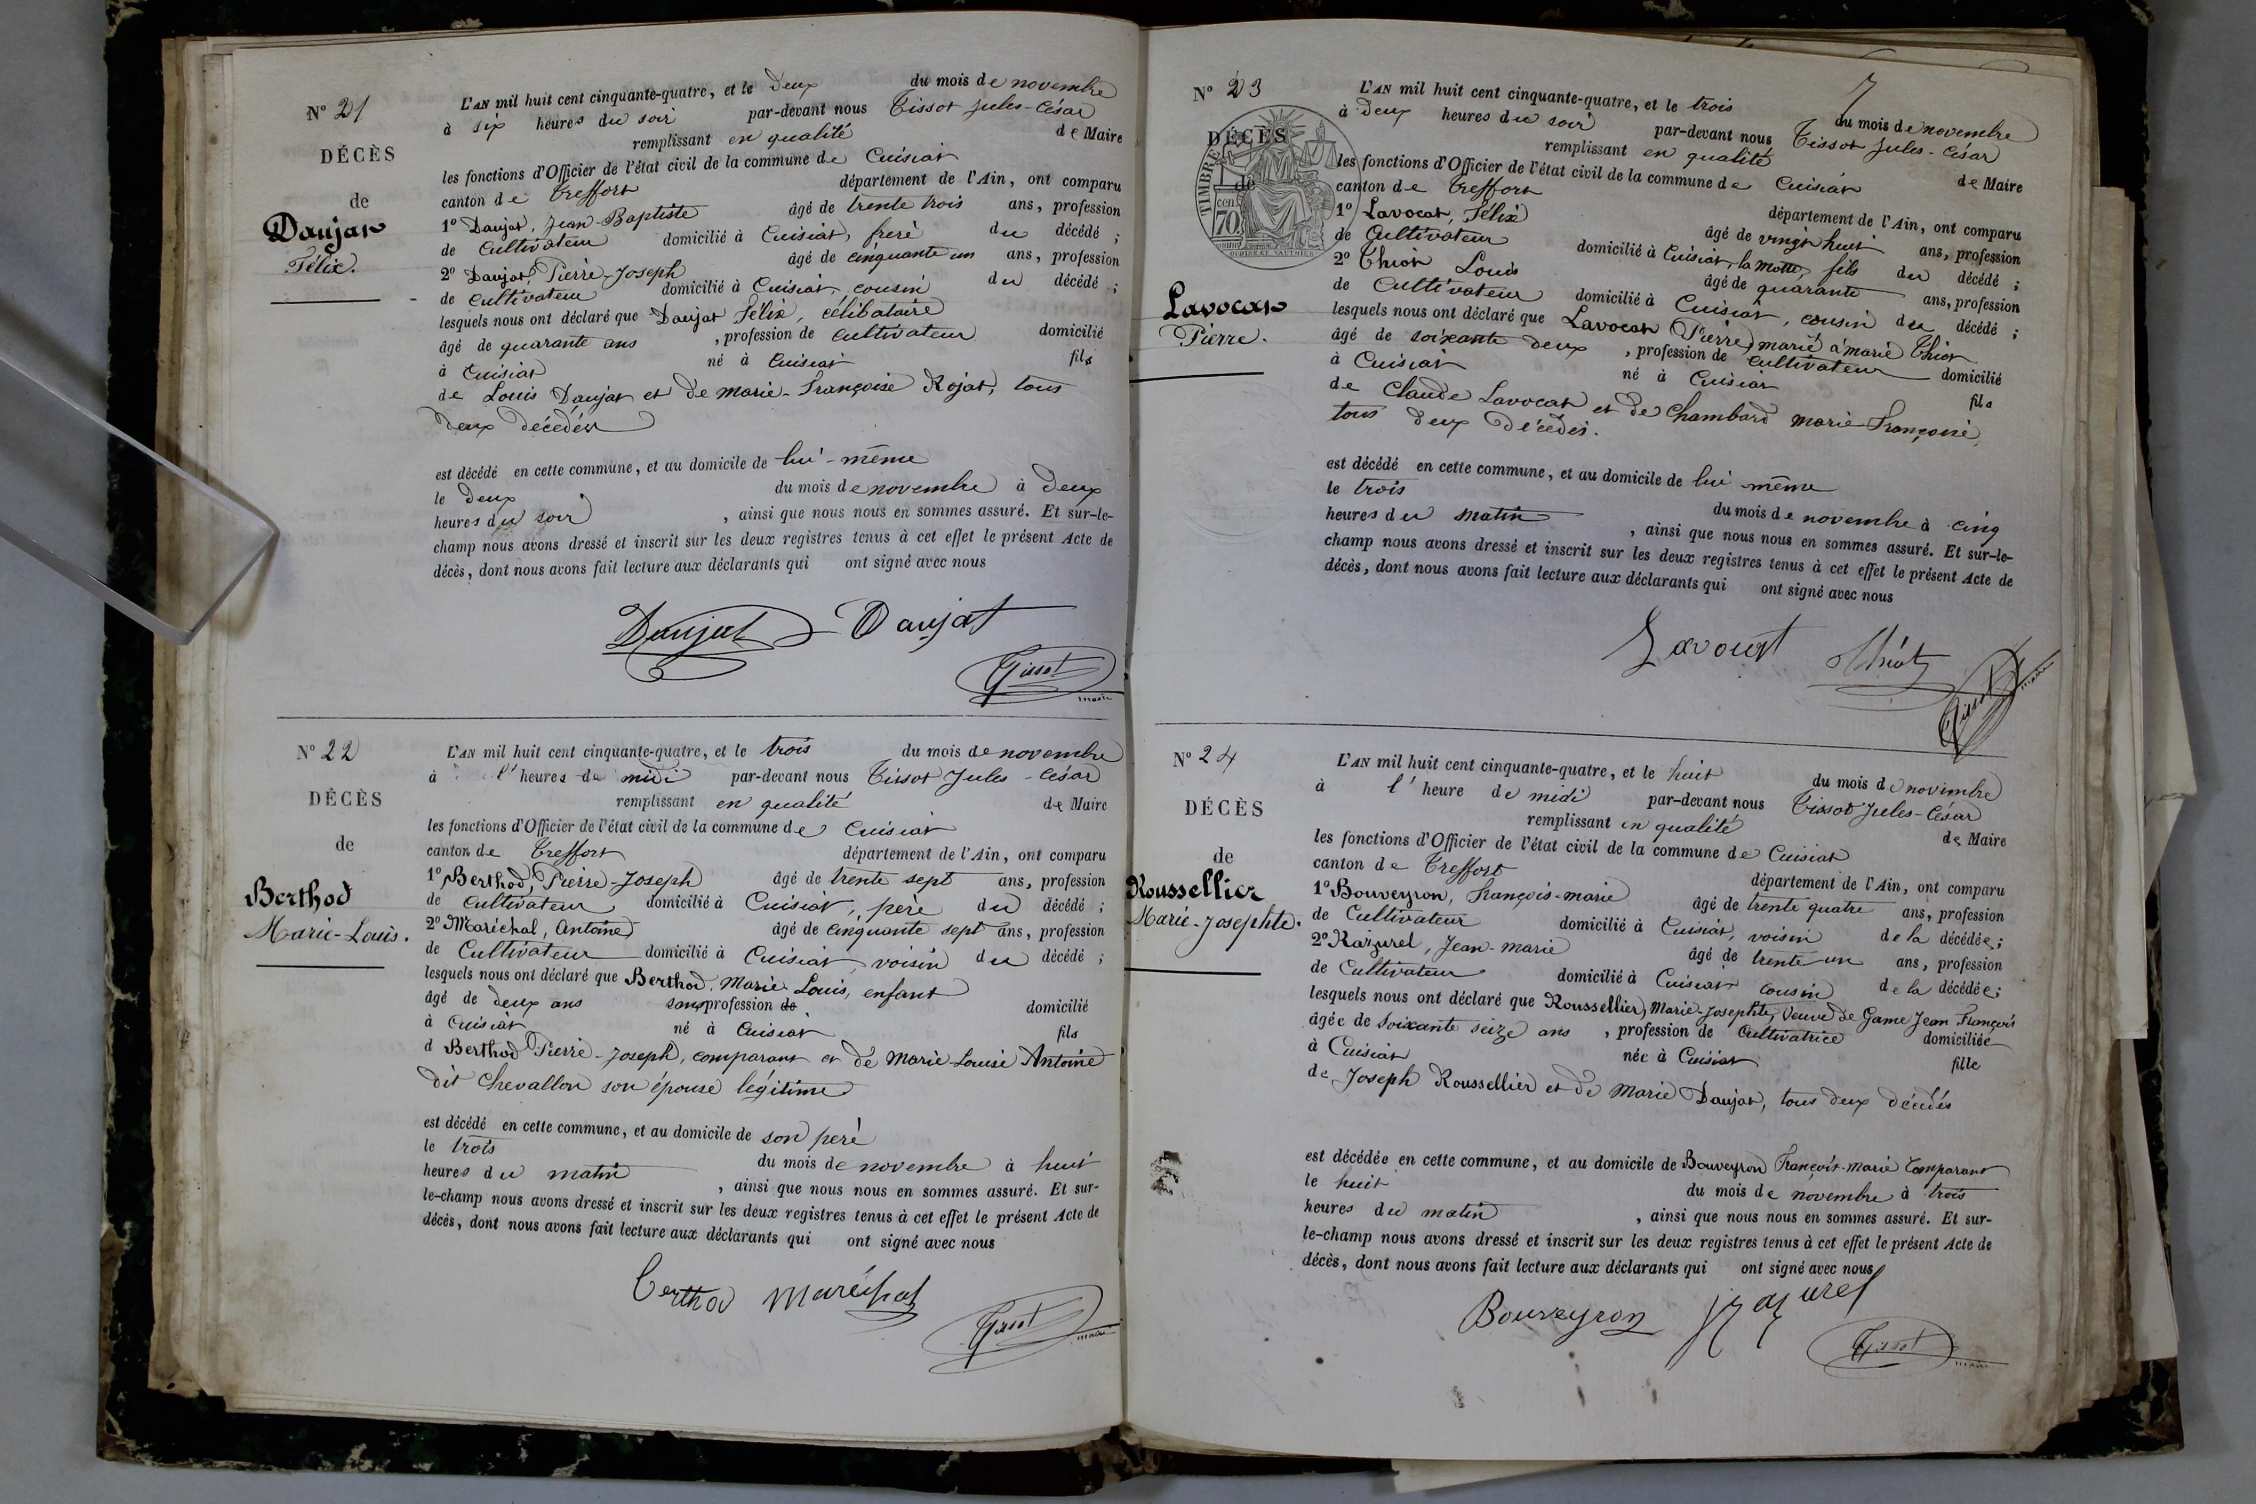 N° 21
DÉCÈS
de
Daujat
Félix.
L'AN mil huit cent cinquante-quatre, et le deux du mois de novembre
à six heures du soir par-devant nous Tissot Jules-César
remplissant en qualité de Maire
les fonctions d'Officier de l'état civil de la commune de Cuisiat
canton de Treffort département de l'Ain, ont comparu
1° Daujat, Jean-Baptiste âgé de trente trois ans, profession
de Cultivateur domicilié à Cuisiat, frerè du décédé ;
2° Daujat, Pierre-Joseph âgé de cinquante un ans, profession
de cultivateur domicilié à Cuisiat, cousin du décédé ;
lesquels nous ont déclaré que Daujat Félix, célibataire
âgé de quarante ans , profession de cultivateur domicilié
à Cuisiat né à Cuisiat fils
de Louis Daujat et de marie-Françoise Rojat, tous
deux décédés
est décédé en cette commune, et au domicile de lui-même
le deux du mois de novembre à deux
heures du soir , ainsi que nous nous en sommes assuré. Et sur-le-
champ nous avons dressé et inscrit sur les deux registres tenus à cet effet le présent Acte de
décès, dont nous avons fait lecture aux déclarants qui ont signé avec nous
Daujat Daujat
Tissot
maire
N° 22
DÉCÈS
de
Berthod
Marie-Louis.
L'AN mil huit cent cinquante-quatre, et le trois du mois de novembre
à l'heures de midi par-devant nous Tissot Jules-César
remplissant en qualité de Maire
les fonctions d'Officier de l'état civil de la commune de Cuisiat
canton de Treffort département de l'Ain, ont comparu
1° Berthod, Pierre-Joseph âgé de trente sept ans, profession
de cultivateur domicilié à Cuisiat, perè du décédé ;
2° Maréchal, Antoine âgé de cinquante sept ans, profession
de Cultivateur domicilié à Cuisiat, voisin du décédé ;
lesquels nous ont déclaré que Berthod, Marie Louis, enfant
âgé de deux ans sans profession de domicilié
à Cuisiat né à Cuisiat fils
d Berthod Pierre-Joseph, comparant et de Marie-Louise Antoine
dit Chevallon son épouse légitime
est décédé en cette commune, et au domicile de son perè
le trois du mois de novembre à huit
heures du matin , ainsi que nous nous en sommes assuré. Et sur-
le-champ nous avons dressé et inscrit sur les deux registres tenus à cet effet le présent Acte de
décès, dont nous avons fait lecture aux déclarants qui ont signé avec nous
Berthod Maréchal
Tissot
maire
7
N° 23
DÉCÈS
de
TIMBRE
cen
70
Lavocat
Pierre.
L'AN mil huit cent cinquante-quatre, et le trois du mois de novembre
à deux heures du soir par-devant nous Tissot Jules-César
remplissant en qualité de Maire
les fonctions d'Officier de l'état civil de la commune de Cuisiat
canton de Treffort département de l'Ain, ont comparu
1° Lavocat, Félix âgé de vingt huit ans, profession
de Cultivateur domicilié à Cuisiat, la motte, fils du décédé ;
2° Thiot Louis âgé de quarante ans, profession
de Cultivateur domicilié à Cuisiat, cousin du décédé ;
lesquels nous ont déclaré que Lavocat (Pierre) marié à marie Thiot
âgé de soixante deux , profession de cultivateur domicilié
à Cuisiat né à Cuisiat fils
de Claude Lavocat et de Chambard marie-Françoise,
tous deux décédés.
est décédé en cette commune, et au domicile de lui même
le trois du mois de novembre à cinq
heures du matin , ainsi que nous nous en sommes assuré. Et sur-le-
champ nous avons dressé et inscrit sur les deux registres tenus à cet effet le présent Acte de
décès, dont nous avons fait lecture aux déclarants qui ont signé avec nous
Lavocat Thiot
Tissot
maire
N° 24
DÉCÈS
de
Roussellier
Marie-Josephte.
L'AN mil huit cent cinquante-quatre, et le huit du mois de novembre
à l'heure de midi par-devant nous Tissot Jules-César
remplissant en qualité de Maire
les fonctions d'Officier de l'état civil de la commune de Cuisiat
canton de Treffort département de l'Ain, ont comparu
1° Bouveyron, François-marie âgé de trente quatre ans, profession
de Cultivateur domicilié à Cuisiat, voisin de la décédée;
2° Razurel, Jean-marie âgé de trente un ans, profession
de Cultivateur domicilié à Cuisiat cousin de la décédée;
lesquels nous ont déclaré que Roussellier, Marie-Josephte, Veuve de Game Jean François
âgée de Soixante seize ans , profession de Cultivatrice domiciliée
à Cuisiat née à Cuisiat fille
de Joseph Roussellier et de Marie Daujat, tous deux décédés
est décédée en cette commune, et au domicile de Bouveyron François-marie Comparant
le huit du mois de novembre à trois
heures du matin , ainsi que nous nous en sommes assuré. Et sur-
le-champ nous avons dressé et inscrit sur les deux registres tenus à cet effet le présent Acte de
décès, dont nous avons fait lecture aux déclarants qui ont signé avec nous
Bouveyron Razurel
Tissot
maire